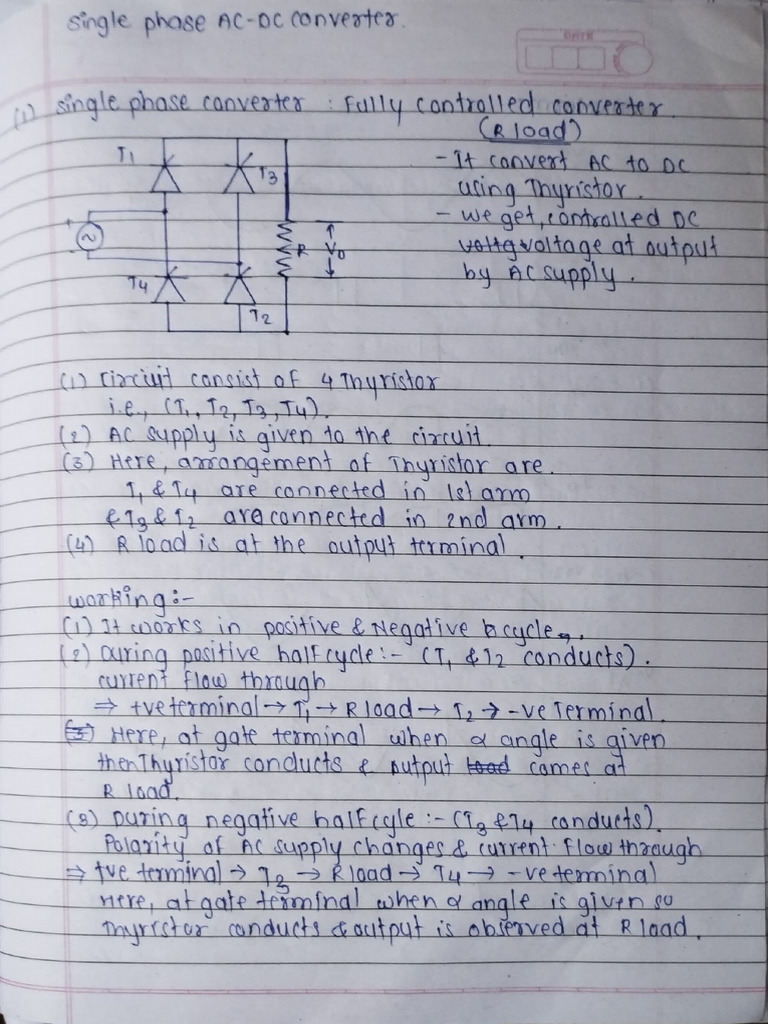 single phase AC-DC converter.
DATE
(1) single phase converter : Fully controlled converter.
(R load)
T1
T3
- It convert AC to DC
using Thyristor.
- we get, controlled DC
voltage at output
by AC supply.
+
R
Vo
-
T4
T2
(1) circiuit consist of 4 Thyristor
i.e., (T1, T2, T3, T4).
(2) AC supply is given to the circuit.
(3) Here, arrangement of Thyristor are.
T1 & T4 are connected in 1st arm
& T3 & T2 are connected in 2nd arm.
(4) R load is at the output terminal.
working :-
(1) It works in positive & Negative cycle.
(2) During positive half cycle :- (T1 & T2 conducts).
current flow through
⇒ +ve terminal → T1 → R load → T2 → -ve Terminal.
Here, at gate terminal when α angle is given
then Thyristor conducts & output comes at
R load.
(3) During negative half cyle :- (T3 & T4 conducts).
Polarity of AC supply changes & current flow through
⇒ +ve terminal → T3 → R load → T4 → -ve terminal
Here, at gate terminal when α angle is given so
Thyristor conducts & output is observed at R load.